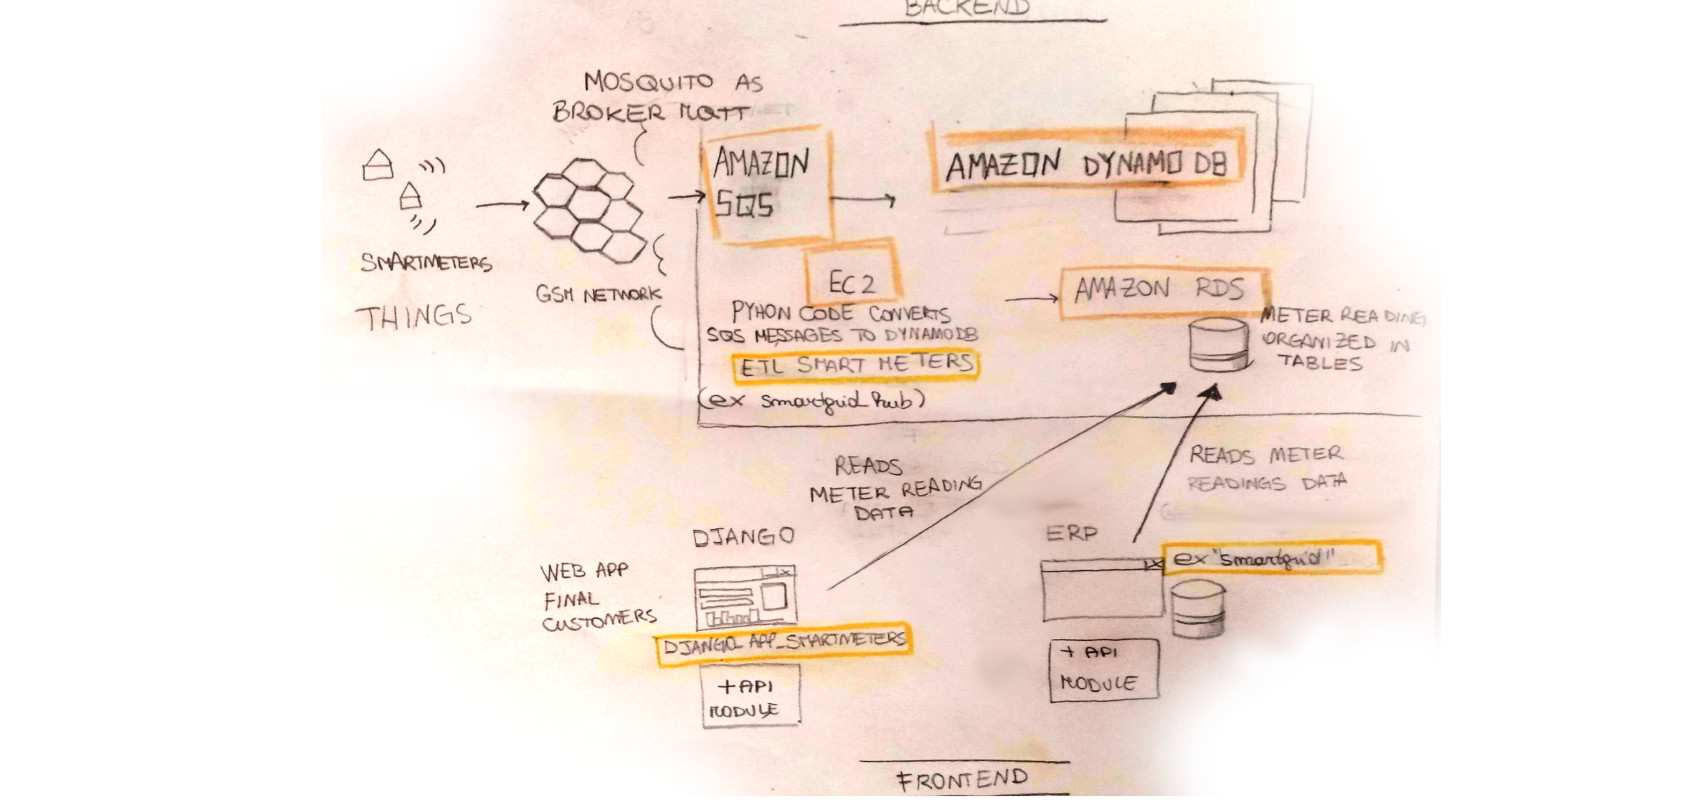 BACKEND
MOSQUITO AS
BROKER MQTT
AMAZON
SQS
AMAZON DYNAMO DB
SMARTMETERS
THINGS
GSM NETWORK
EC2
PYHON CODE CONVERTS
SQS MESSAGES TO DYNAMODB
ETL SMART METERS
(ex smartgrid hub)
AMAZON RDS
METER READING
ORGANIZED IN
TABLES
READS
METER READING
DATA
READS METER
READINGS DATA
DJANGO
WEB APP
FINAL
CUSTOMERS
DJANGO_APP_SMARTMETERS
+ API
MODULE
ERP
ex "smartgrid"
+ API
MODULE
FRONTEND